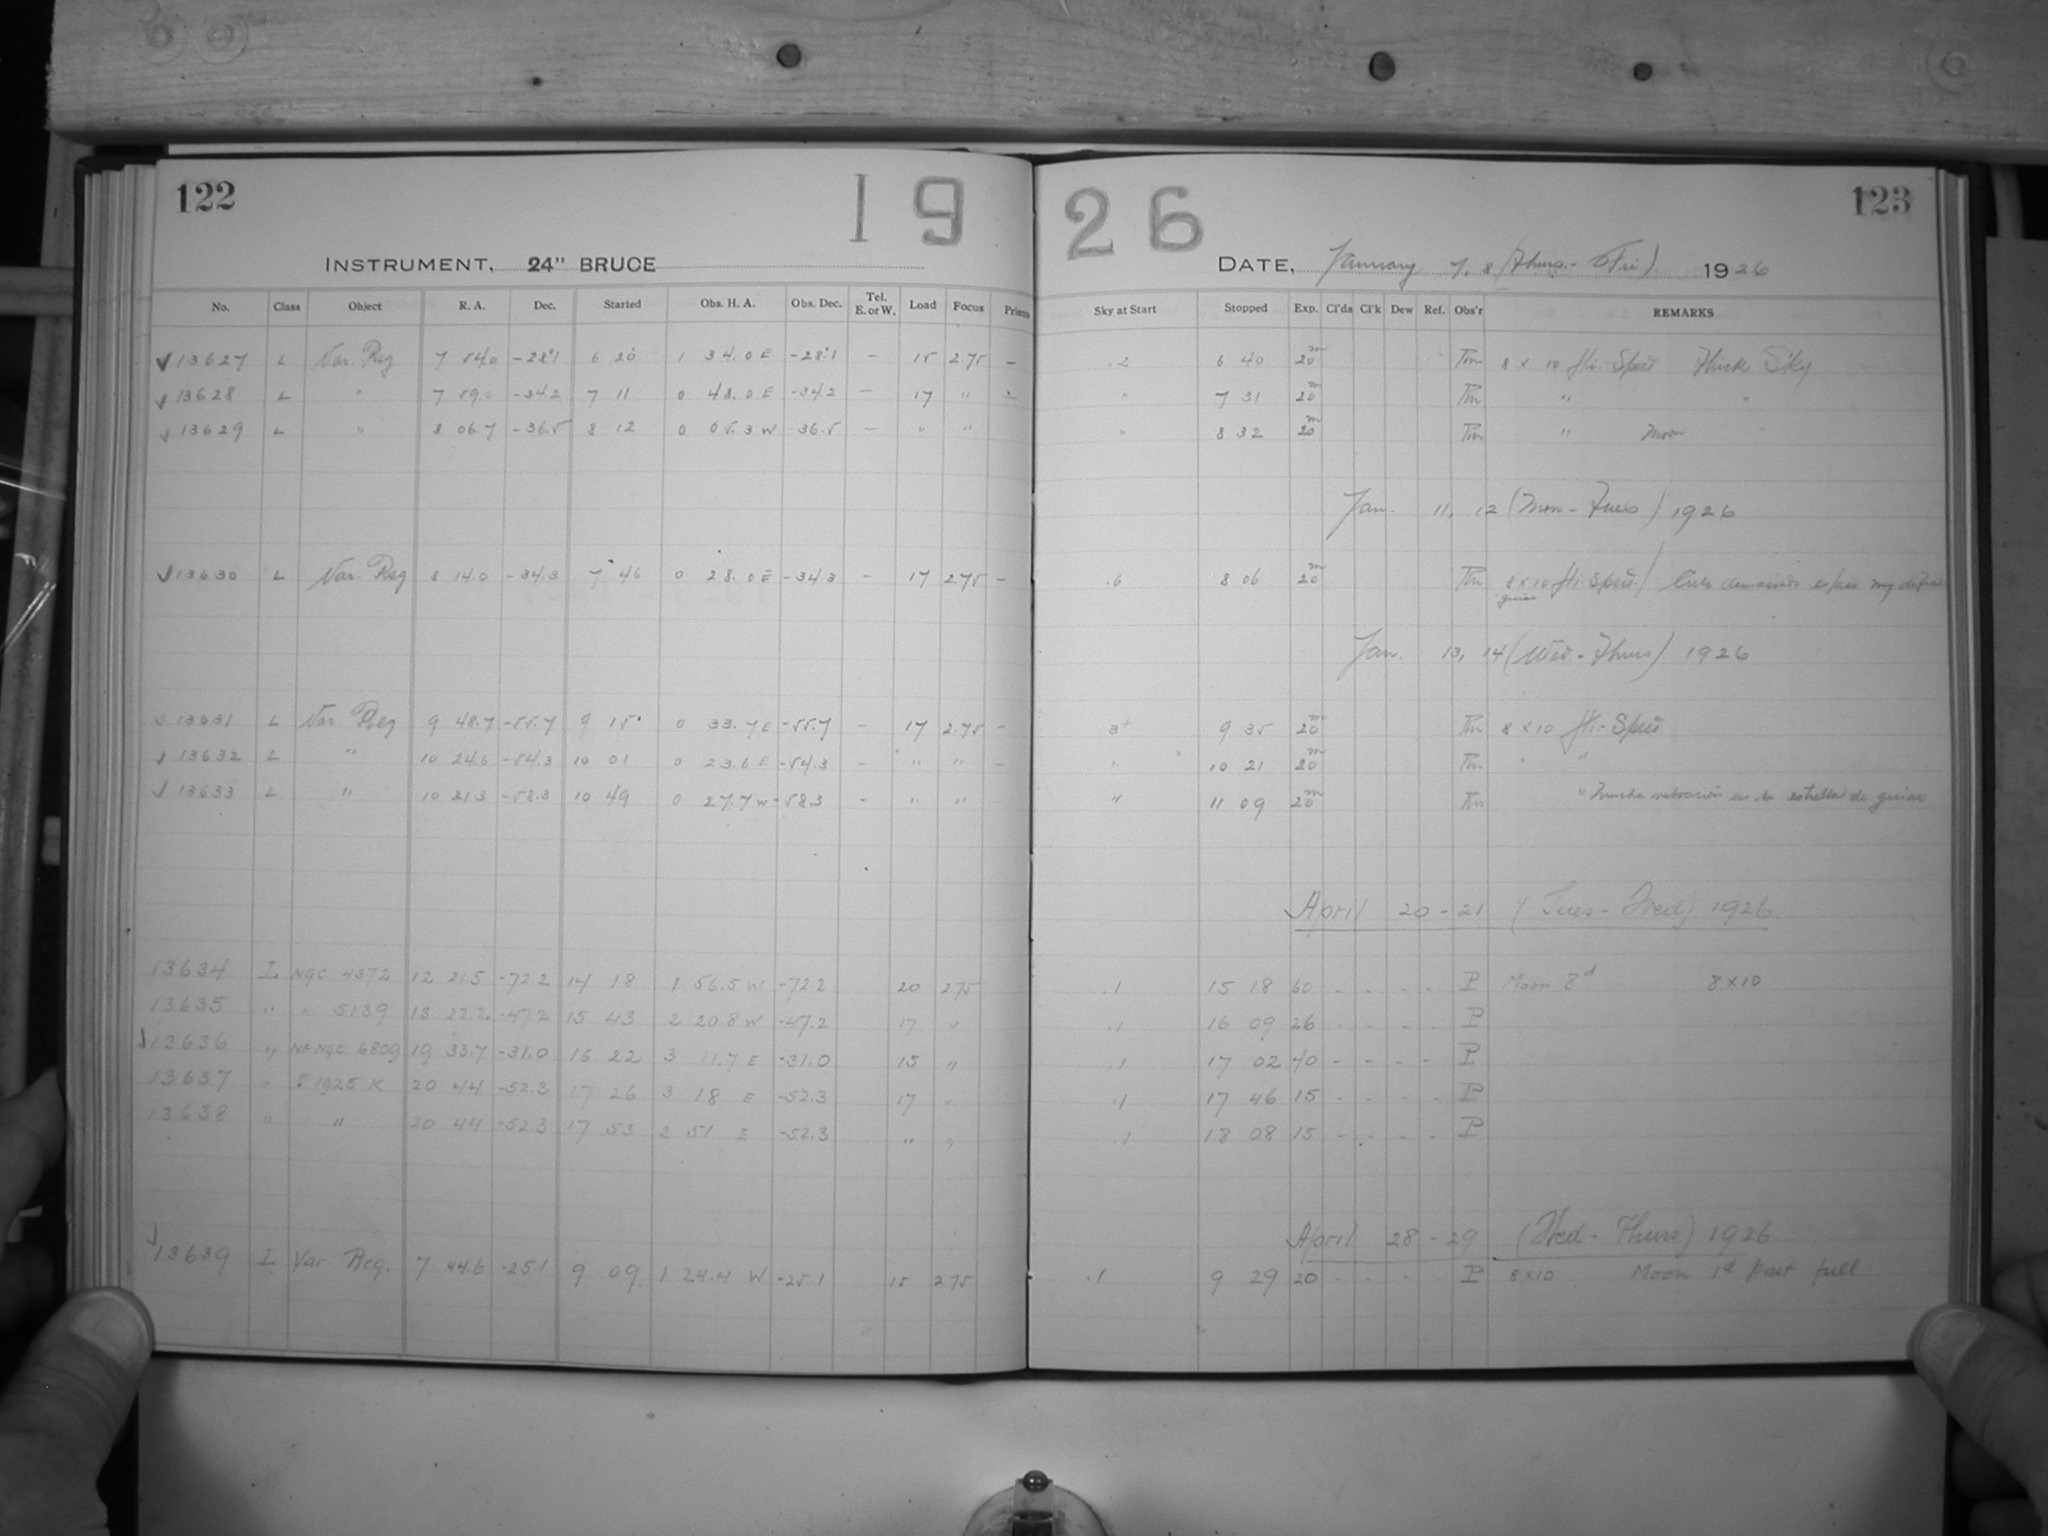 122
19
26
123
INSTRUMENT, 24" BRUCE
DATE, January 7, 8 (Thurs.- Fri) 1926
No. Class Object R. A. Dec. Started Obs. H. A. Obs. Dec. Tel. E. or W. Load Focus Prisms Sky at Start Stopped Exp. Cl'ds Cl'k Dew Ref. Obs'r REMARKS
√13627 L Var. Reg 7 54.0 -28.1 6 20 1 34.0 E -28.1 - 15 2.75 - .2 6 40 20m 8 x 10 Hi-Speed Thick Sky
√13628 L " 7 59.0 -34.2 7 11 0 48.0 E -34.2 - 17 " - " 7 31 20m " "
√13629 L " 8 06.7 -36.5 8 12 0 05.3 W -36.5 - " " " 8 32 20m " Moon "
Jan. 11, 12 (Mon - Tues) 1926
√13630 L Var. Reg 8 14.0 -34.3 7 46 0 28.0 E -34.3 - 17 2.75 - .6 8 06 20m 8 x 10 Hi-Speed
guiar
Jan. 13, 14 (Wed. - Thurs) 1926
√13631 L Var. Reg 9 48.7 -55.7 9 15 0 33.7 E -55.7 - 17 2.75 - 3+ 9 35 20m 8 x 10 Hi-Speed
√13632 L " 10 24.6 -54.3 10 01 0 23.6 E -54.3 - " " - " 10 21 20m " "
√13633 L " 10 21.3 -58.3 10 49 0 27.7 W -58.3 - " " " 11 09 20m " Mucha en la estrella de guiar
April 20 - 21 (Tues - Wed) 1926
13634 I. NGC 4372 12 21.5 -72.2 14 18 1 56.5 W -72.2 20 275 .1 15 18 60 - - - - P Moon 8d 8x10
13635 " " 5139 13 22.2 -47.2 15 43 2 20.8 W -47.2 17 " .1 16 09 26 - - - - P
√13636 " NE NGC 6809 19 33.7 -31.0 16 22 3 11.7 E -31.0 15 " .1 17 02 40 - - - - P
13637 " 1925 K 20 44 -52.3 17 26 3 18 E -52.3 17 " .1 17 46 15 - - - - P
13638 " " 20 44 -52.3 17 53 2 51 E -52.3 " " .1 18 08 15 - - - - P
April 28 - 29 (Wed - Thurs) 1926
√13639 I Var Reg. 7 44.6 -25.1 9 09 1 24.4 W -25.1 15 275 .1 9 29 20 - - - - P 8x10 Moon 1d past full